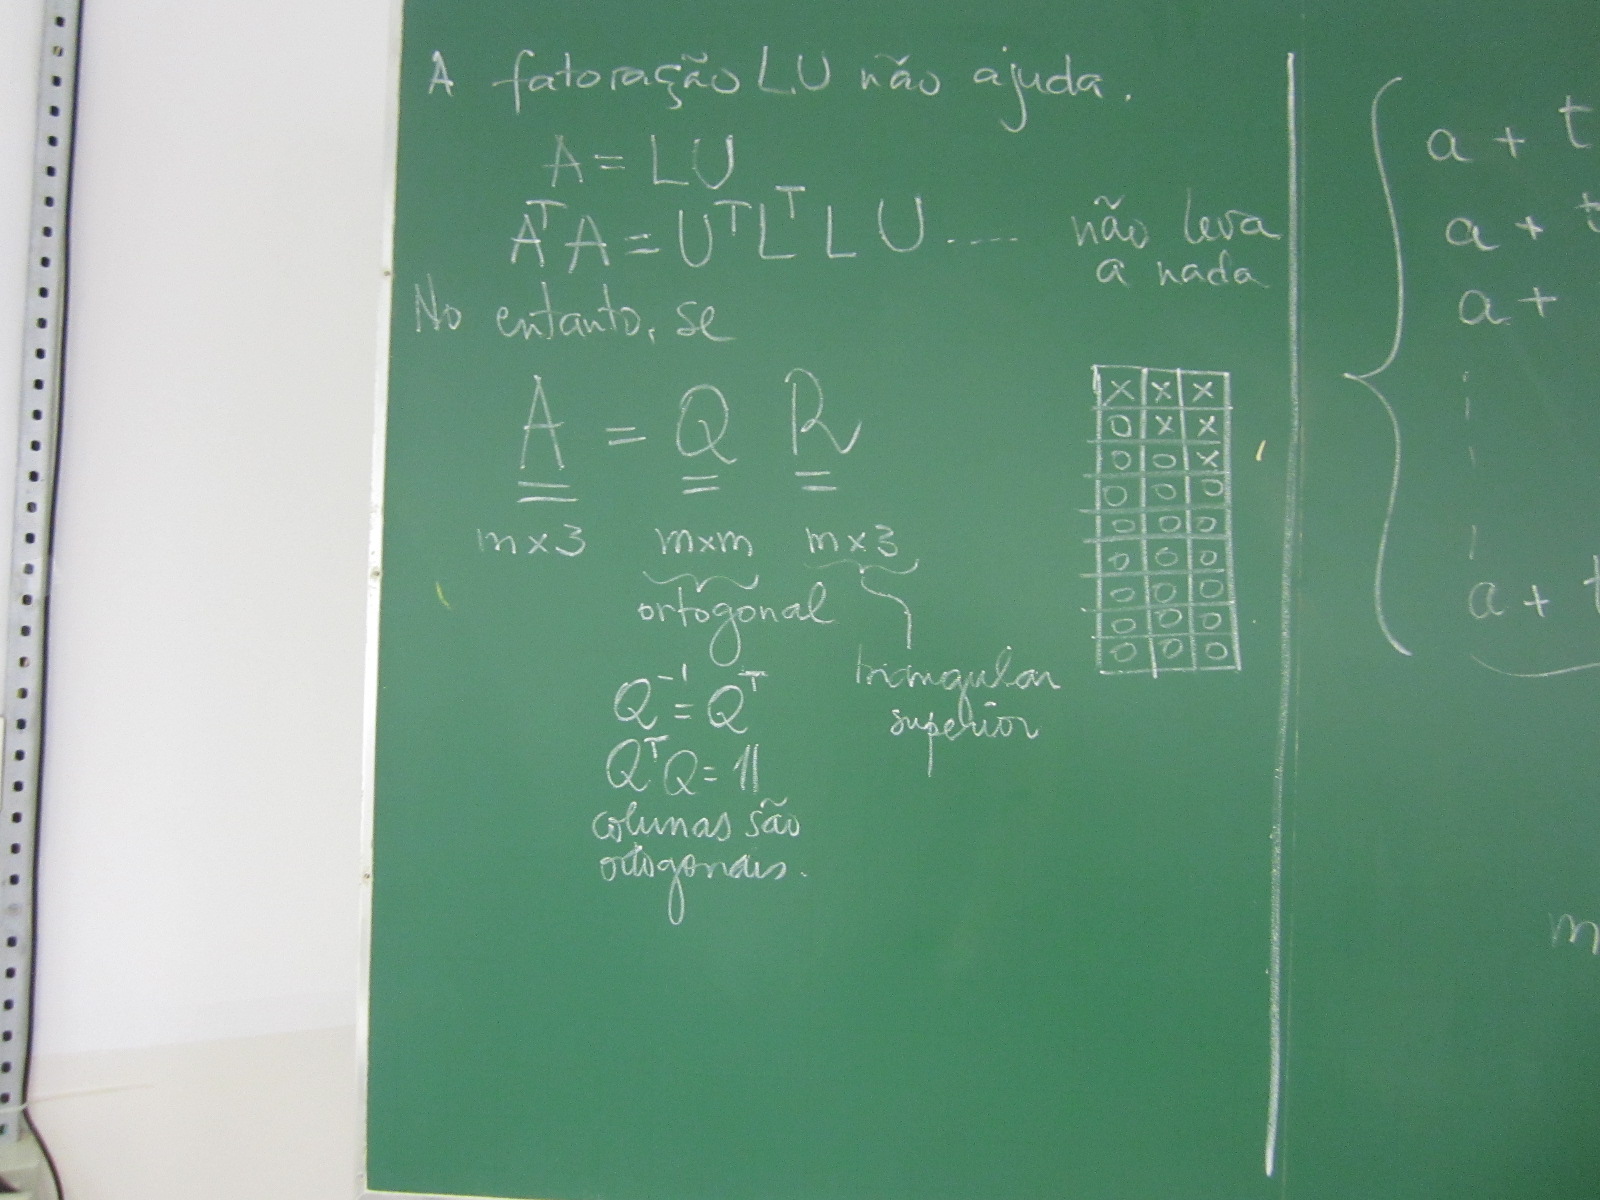 A fatoração LU não ajuda.
A = LU
AᵀA = UᵀLᵀLU .... não leva
a nada
No entanto, se
A = Q R
m×3 m×m m×3
ortogonal
triangular
superior
Q⁻¹ = Qᵀ
QᵀQ = 𝟙
colunas são
ortogonais.
x x x
0 x x
0 0 x
0 0 0
0 0 0
0 0 0
0 0 0
0 0 0
0 0 0
a + t
a + t
a +
a + t
m